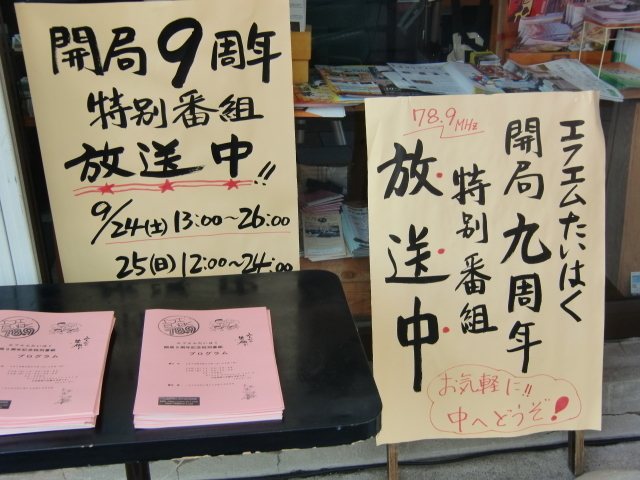 開局9周年
特別番組
放送中!!
9/24(土)13:00~26:00
25(日)12:00~24:00
78.9MHz
エフエムたいはく
開局九周年
特別番組
放送中
お気軽に!!
中へどうぞ!
エフエムたいはく
プログラム